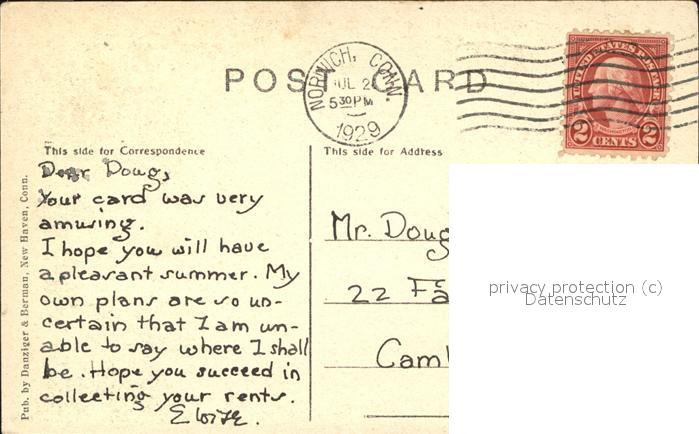 POST CARD
NORWICH, CONN.
JUL 2
5 30 PM
1929
UNITED STATES POSTAGE
2 CENTS 2
This side for Correspondence
Dear Doug,
Your card was very
amusing.
I hope you will have
a pleasant summer. My
own plans are so un-
certain that I am un-
able to say where I shall
be. Hope you succeed in
collecting your rents.
Eloise.
This side for Address
Mr. Doug
22 Fa
Cam
privacy protection (c)
Datenschutz
Pub. by Danziger & Berman, New Haven, Conn.